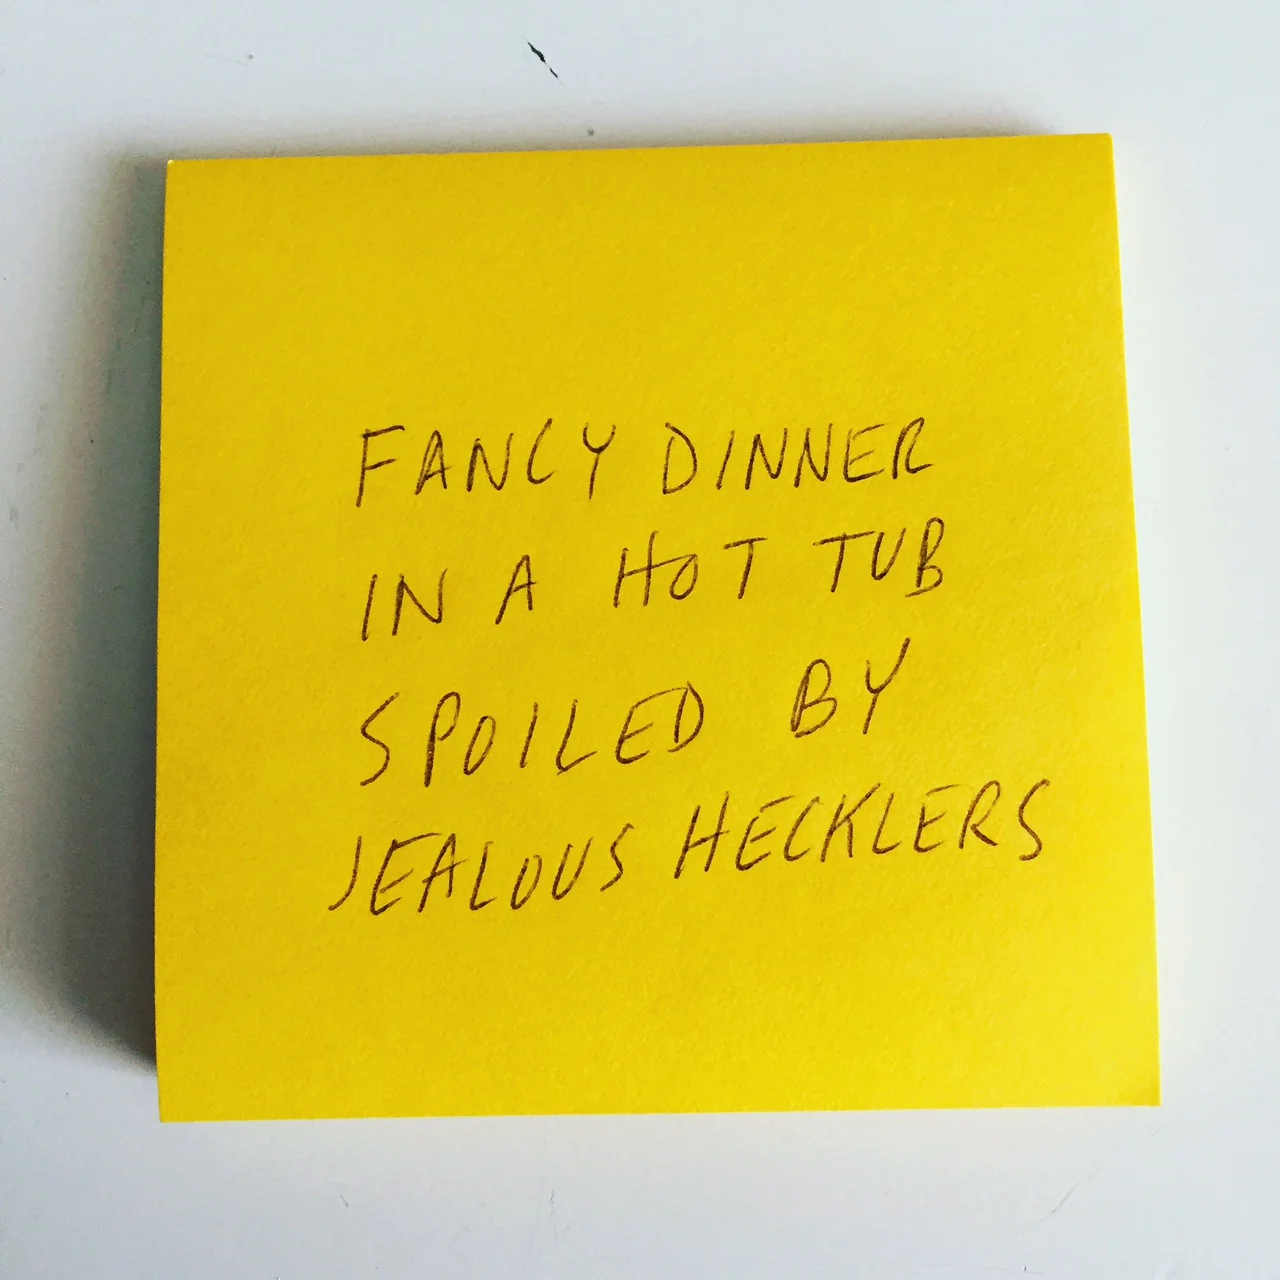 FANCY DINNER
IN A HOT TUB
SPOILED BY
JEALOUS HECKLERS